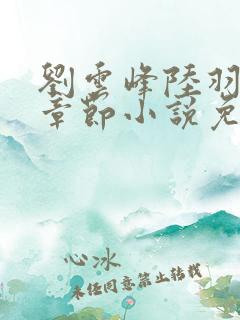 劉雲峰陸羽
章節小說免
心冰
未經同意禁止轉載